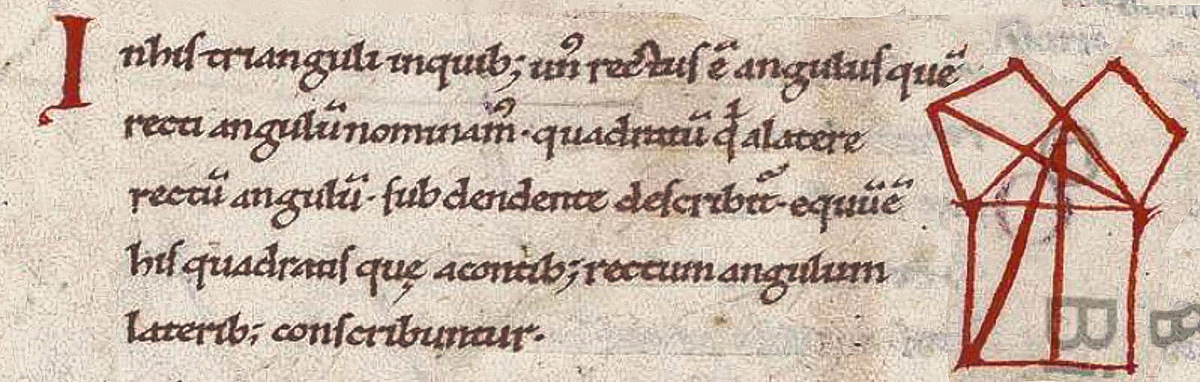 In his trianguli inquib; un᷒ rectus ē angulus quē
recti angulū nominam᷒ · quadratū qđ a latere
rectū angulū · sub dendente describit᷑ · equū ē
his quadratis quę acontib; rectum angulum
laterib; conscribuntur ·